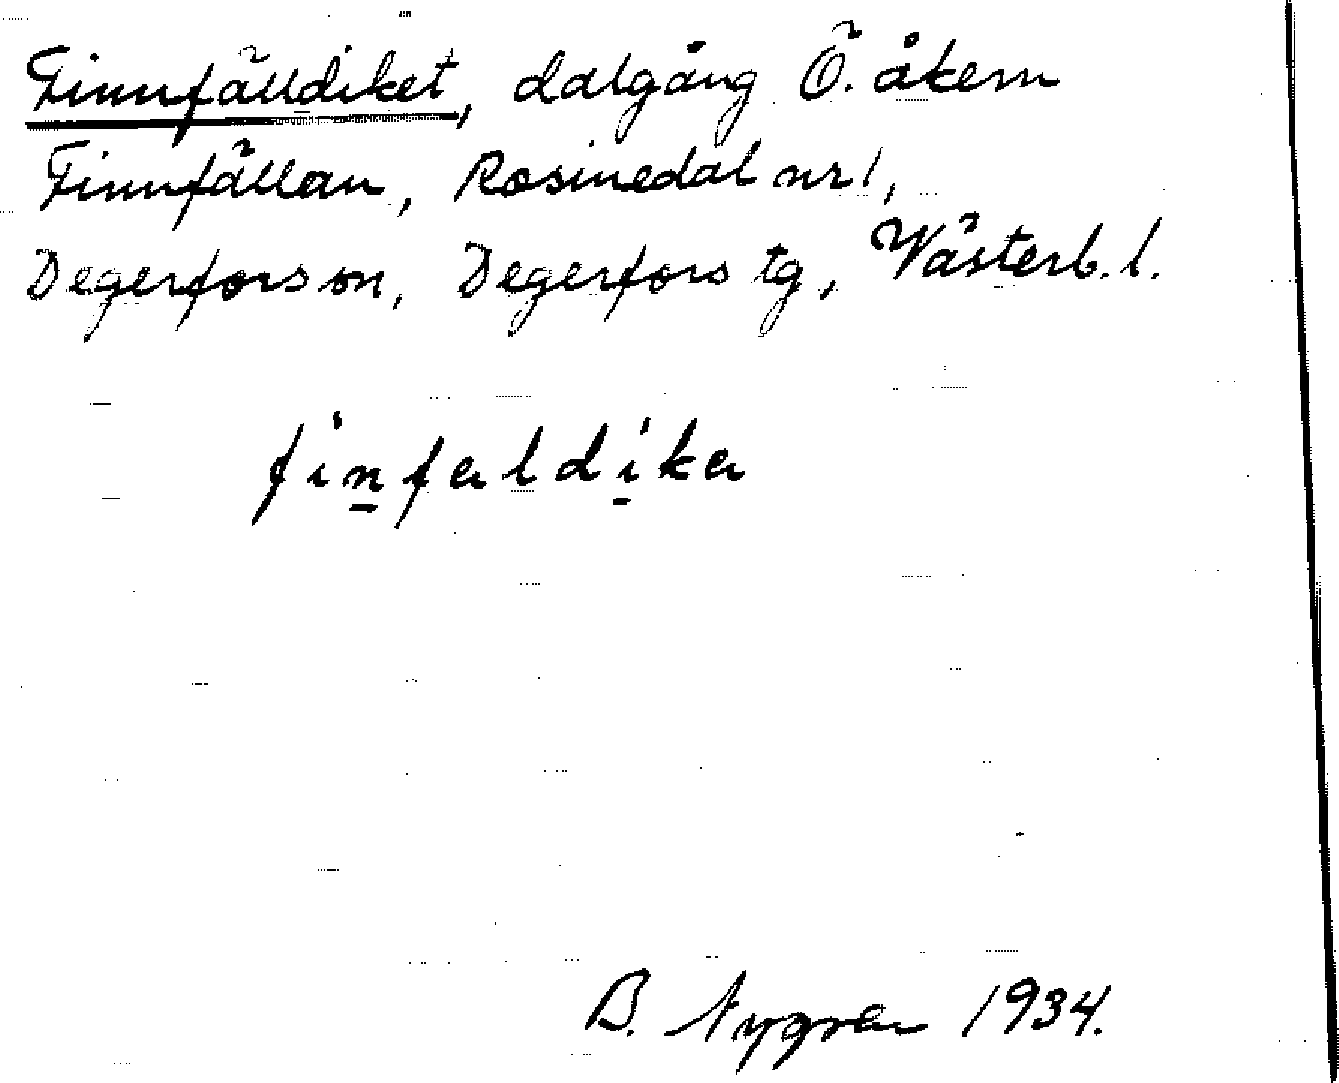 Finnfälldiket, dalgång Ö. åkern
Finnfällan, Rosinedal nr 1,
Degerfors sn, Degerfors tg, Västerb. l.
finfældikæ
B. Nygren 1934.